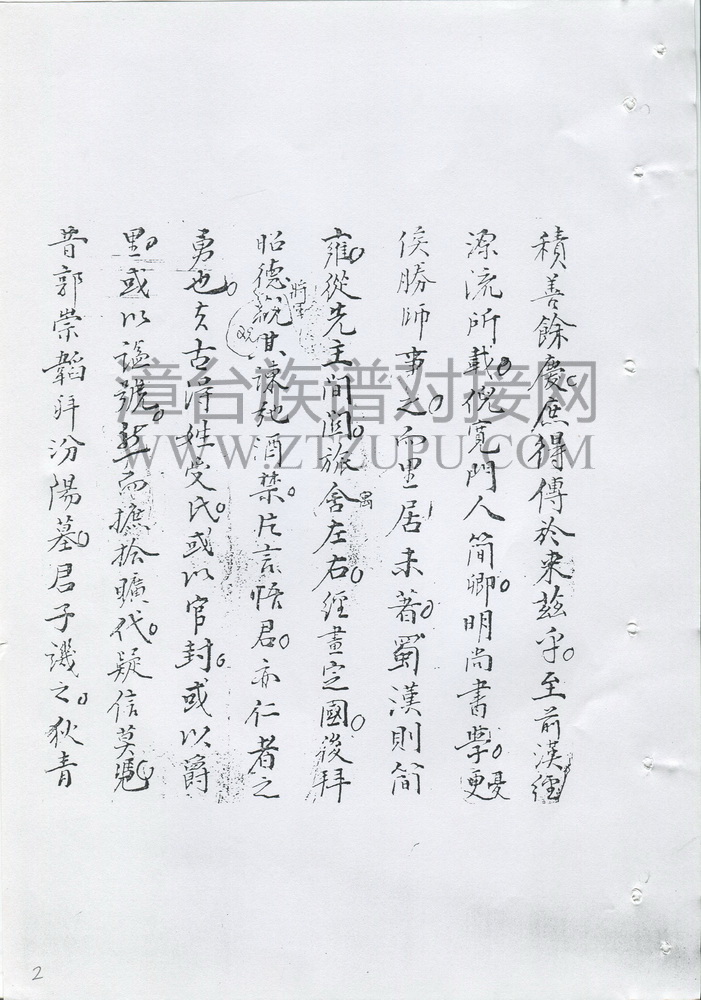 積善餘慶。庶得傳於來茲乎。至前漢經
源流所載。倪寬門人簡卿。明尚書學。更憂
侯勝師事之。而里居未著。蜀漢則簡
雍。從先主間関旅舍左右。經畫定國。後拜
昭德將軍。觀其諫弛酒禁。片言悟君。亦仁者之
勇也。夫古得姓受氏。或以官封。或以爵
里。或以諡號。然而摭拾曠代。疑信莫憑。
昔郭崇韜拜汾陽墓。君子譏之。狄青
漳台族谱对接网
WWW.ZTZUPU.COM
2